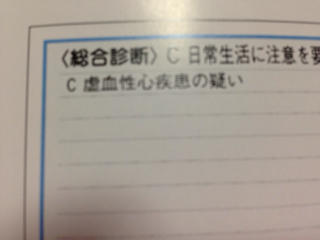 〈総合診断〉 C 日常生活に注意を要
C 虚血性心疾患の疑い